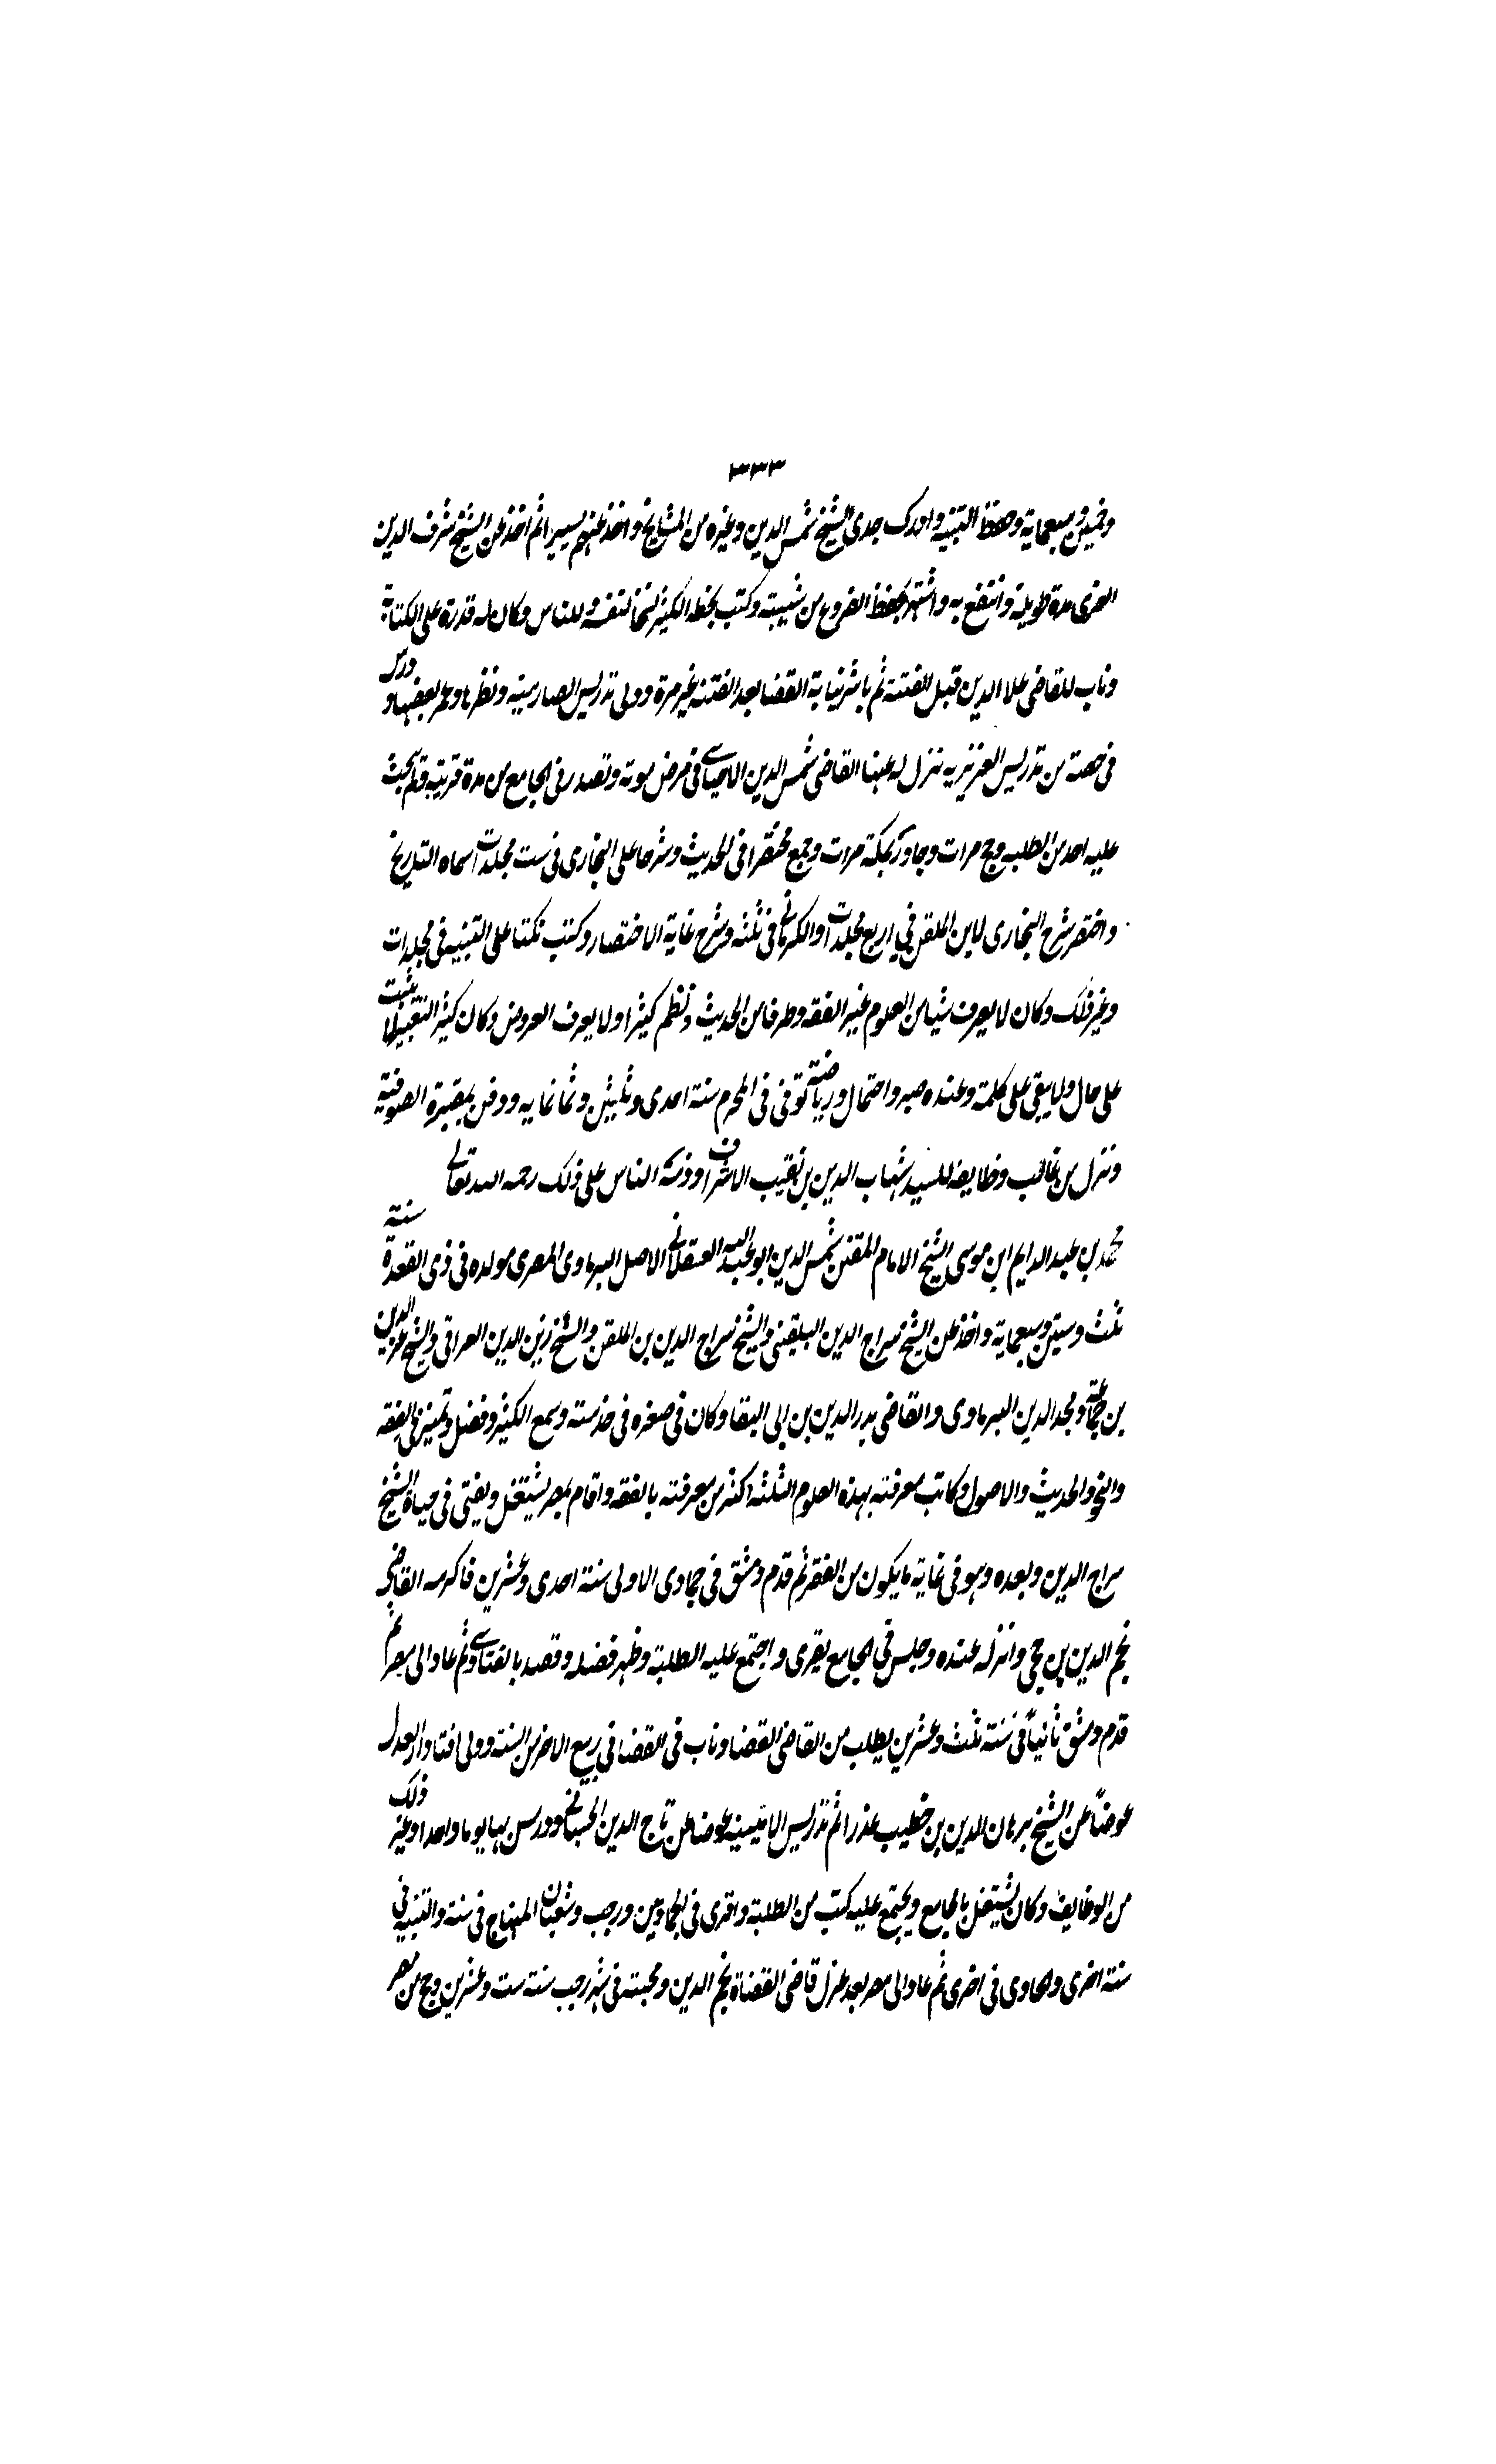 ٣٣٣
وخمسين وسبعماية وحفظ التنبيه وادرك جدى الشيخ شمس الدين وغيره من المشايخ واخذ عنهم يسيرا ثم اخذ عن الشيخ شرف الدين
الغزى مدة طويلة وانتفع به واشتهر بحفظ الفروع من شبيبته وكتب بخطه الكثير نسخا لنفسه وللناس وكان له قدرة على الكتابة
وناب للقاضى علاء الدين قبل الفتنة ثم باشر نيابة القضا بعد الفتنة غير مرة وولى تدريس الصارمية ونظرها وعمر بعضها ودرس
فى حصته من تدريس العزيزيه نزل له عنها القاضى شمس الدين الاخناى فى مرض موته وتصدر فى الجامع من مدة قريبة وقلم يبحث
عليه احد من الطلبه وحج مرات وجاور بمكة مرات وجمع مختصرا فى الحديث وشرحا على البخارى فى ست مجلدات اسماه التلويح
واختصر شرح البخارى لابن الملقن فى اربع مجلدات والكرمانى فى ثلثه وشرح غاية الاختصار وكتب نكتا على التنبيه فى مجلدات
وغير ذلك وكان لا يعرف شيا من العلوم غير الفقه وطرفا من الحديث ونظم كثيرا ولا يعرف العروض وكان كثير التغير لا يثبت
على حال ولا يبقى على كلمة وعنده صبر واحتمال ورياضته توفى فى المحرم سنة احدى وثلثين وثمانمايه ودفن بمقبرة الصوفية
ونزل من غالب وظايفه للسيد شهاب الدين بن نقيب الاشراف وذمه الناس على ذلك رحمه الله تعالى
محمد بن عبد الدايم ابن موسى الشيخ الامام المفنن شمس الدين ابو عبد الله العسقلانى الاصل البرماوى المصرى مولده فى ذى القعدة سنة
ثلث وستين وسبعماية واخذ عن الشيخ سراج الدين البلقينى والشيخ سراج الدين بن الملقن والشيخ زين الدين العراقى والشيخ عز الدين
بن جماعة ومجد الدين البرماوى والقاضى بدر الدين بن ابى البقا وكان فى صغره فى خدمته وسمع الكثير وفضل وتميز فى الفقه
والنحو والحديث والاصول وكانت معرفته بهذه العلوم الثلثة اكثر من معرفته بالفقه واقام بمصر يشتغل ويفتى فى حياة الشيخ
سراج الدين وبعده وهو فى غاية ما يكون من الفقر ثم قدم دمشق فى جمادى الاولى سنة احدى وعشرين فاكرمه القاضى
نجم الدين بن حجى وانزله عنده وجلس فى الجامع يقرى واجتمع عليه الطلبة وظهر فضله وقصد بالفتاوى ثم عاد الى مصر ثم
قدم دمشق ثانياً فى سنة ثلث وعشرين بطلب من القاضى القضا وناب فى القضا فى ربيع الاخر من السنة وولى افتا دار العدل
عوضاً عن الشيخ برهان الدين بن خطيب عذرا ثم تدريس الامينية عوضا عن تاج الدين الحسبانى ودرس بها يوما واحدا وغير ذلك
من الوظايف وكان يشتغل بالجامع ويجتمع عليه كتب من الطلبة واقرى فى الجمادين ورجب وشعبان المنهاج فى سنة والتنبيه فى
سنة اخرى والحاوى فى اخرى ثم عاد الى مصر بعد عزل قاضى القضاة نجم الدين ومحبته فى شهر رجب سنة ست وعشرين وحج من مصر